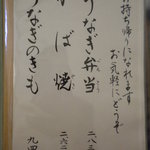 お持ち帰りになれます
お気軽にどうぞ
うなぎ弁当
二、八
かば焼
二、六
うなぎのきも
九四